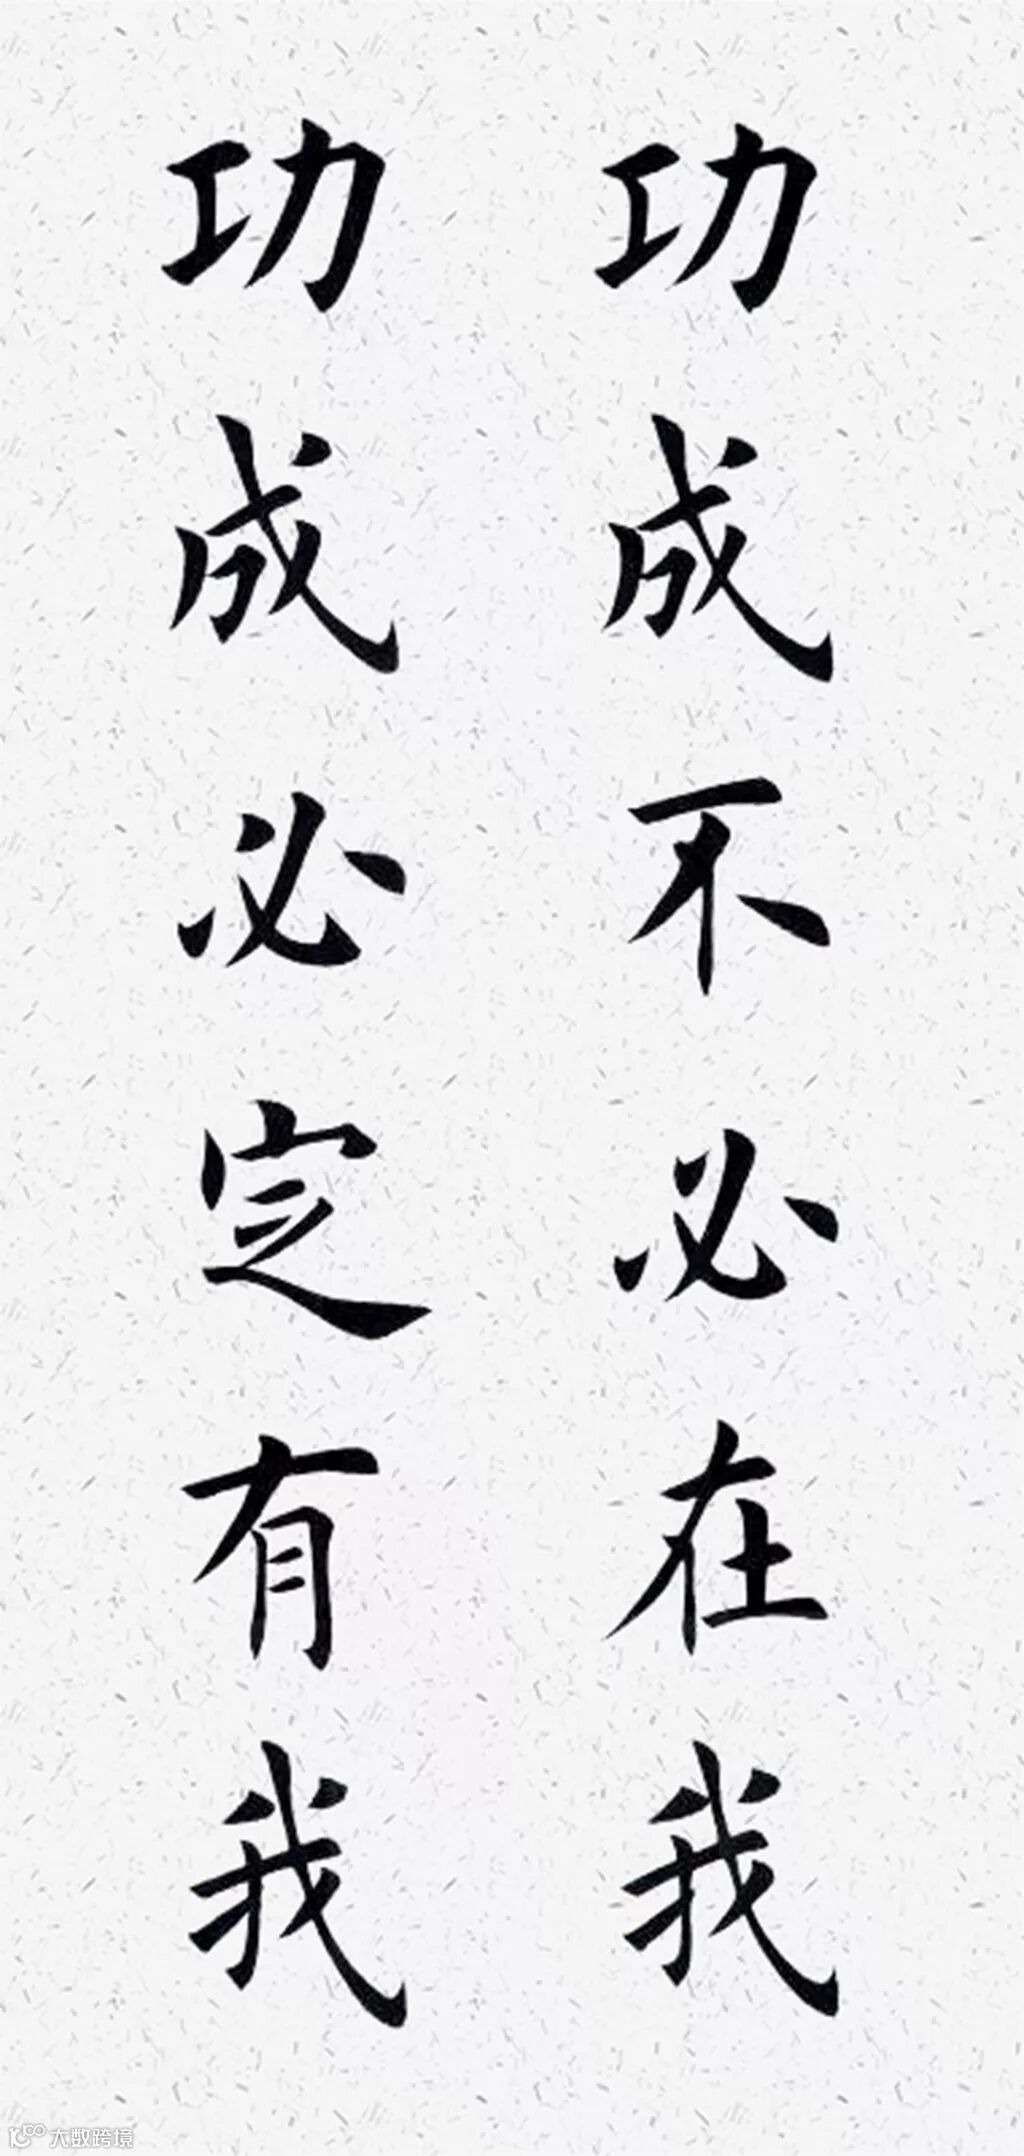 功成不必在我
功成必定有我
大数跨境